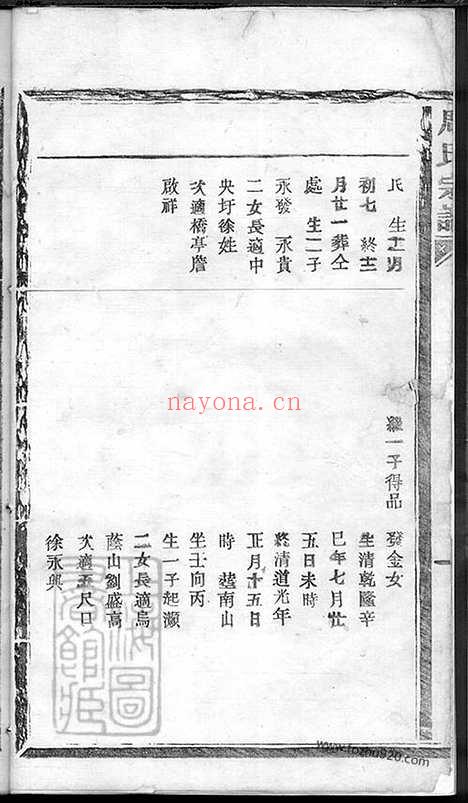 周氏宗譜
氏 生十二月
初七 終十二
月廿一葬仝
處 生二子
永發 永貴
二女長適中
央圩徐姓
次適橋亭詹
啟祥
繼一子得品
發金女
生清乾隆辛
巳年七月廿
五日未時
終清道光年
正月十五日
時 塟南山
坐壬向丙
生一子起灝
二女長適烏
蔭山劉盛高
次適五尺口
徐永興
一
nayona.cn
www.fozhu920.com